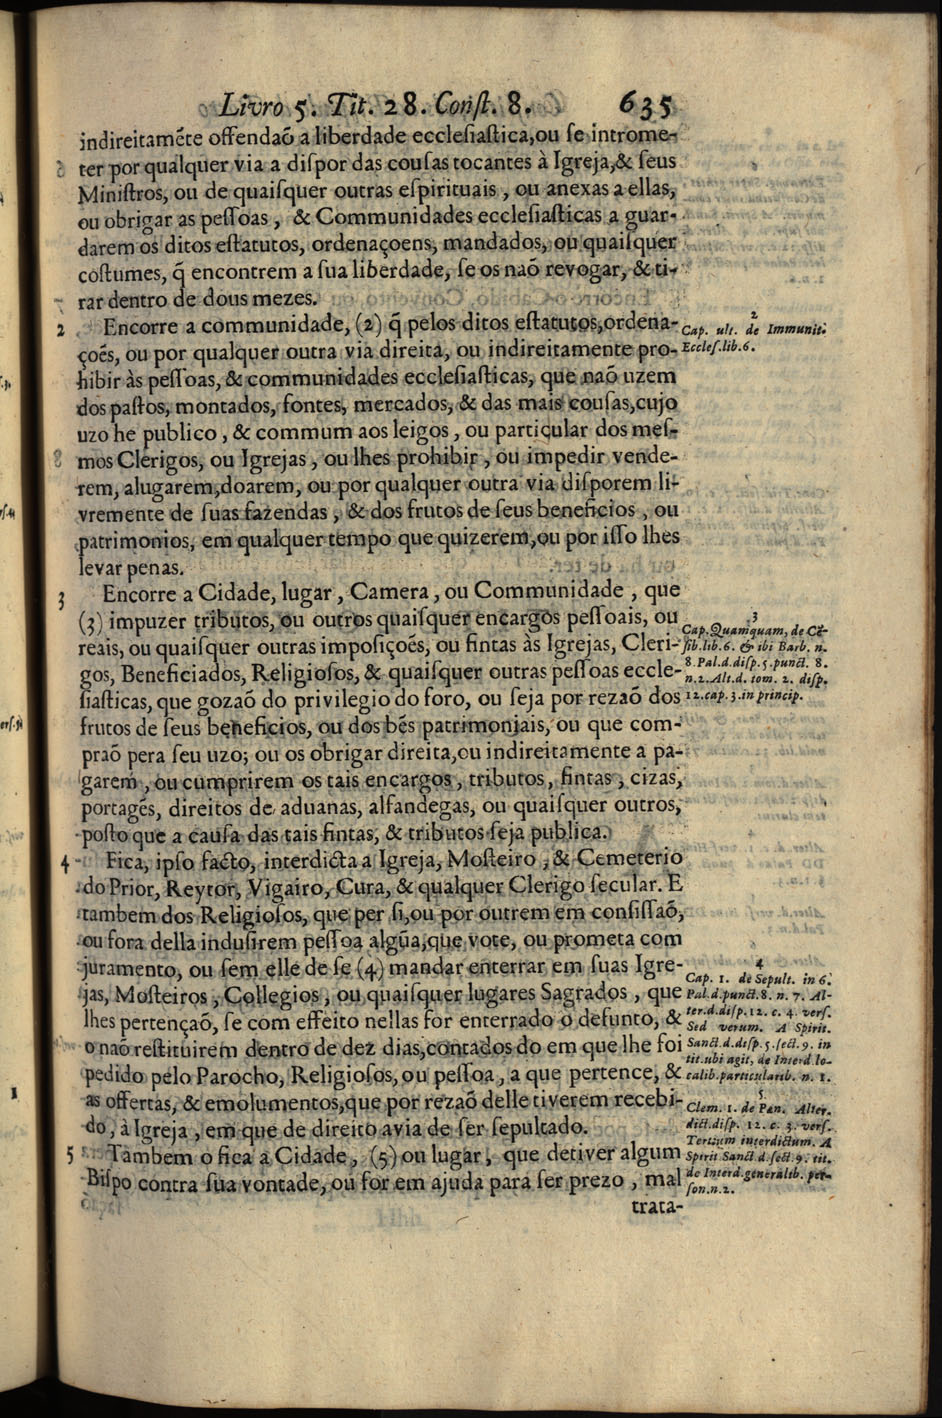 Livro 5. Tit. 28. Const. 8. 635
indireitamẽte offendaõ a liberdade ecclesiastica,ou se introme-
ter por qualquer via a dispor das cousas tocantes à Igreja,& seus
Ministros, ou de quaisquer outras espirituais , ou anexas a ellas,
ou obrigar as pessoas , & Communidades ecclesiasticas a guar-
darem os ditos estatutos, ordenaçoens, mandados, ou quaisquer
costumes, q̃ encontrem a sua liberdade, se os naõ revogar, & ti-
rar dentro de dous mezes.
2 Encorre a communidade, (2) q̃ pelos ditos estatutos,ordena-
çoẽs, ou por qualquer outra via direita, ou indireitamente pro-
hibir às pessoas, & communidades ecclesiasticas, que naõ uzem
dos pastos, montados, fontes, mercados, & das mais cousas,cujo
uzo he publico , & commum aos leigos , ou particular dos mes-
mos Clerigos, ou Igrejas , ou lhes prohibir , ou impedir vende-
rem, alugarem,doarem, ou por qualquer outra via disporem li-
vremente de suas fazendas , & dos frutos de seus beneficios , ou
patrimonios, em qualquer tempo que quizerem,ou por isso lhes
levar penas.
3 Encorre a Cidade, lugar , Camera , ou Communidade , que
(3) impuzer tributos, ou outros quaisquer encargos pessoais, ou
reais, ou quaisquer outras imposiçoẽs, ou fintas às Igrejas, Cleri-
gos, Beneficiados, Religiosos, & quaisquer outras pessoas eccle-
siasticas, que gozaõ do privilegio do foro, ou seja por rezaõ dos
frutos de seus beneficios, ou dos bẽs patrimoniais, ou que com-
praõ pera seu uzo; ou os obrigar direita,ou indireitamente a pa-
garem , ou cumprirem os tais encargos , tributos , fintas , cizas,
portagẽs, direitos de aduanas, alfandegas, ou quaisquer outros,
posto que a causa das tais fintas, & tributos seja publica.
4 Fica, ipso facto, interdicta a Igreja, Mosteiro , & Cemeterio
do Prior, Reytor, Vigairo, Cura, & qualquer Clerigo secular. E
tambem dos Religiosos, que per si,ou por outrem em confissaõ,
ou fora della indusirem pessoa algũa,que vote, ou prometa com
juramento, ou sem elle de se (4) mandar enterrar em suas Igre-
jas, Mosteiros , Collegios , ou quaisquer lugares Sagrados , que
lhes pertençaõ, se com effeito nellas for enterrado o defunto, &
o naõ restituirem dentro de dez dias,contados do em que lhe foi
pedido pelo Parocho, Religiosos, ou pessoa , a que pertence, &
as offertas, & emolumentos,que por rezaõ delle tiverem recebi-
do, à Igreja , em que de direito avia de ser sepultado.
5 Tambem o fica a Cidade , (5) ou lugar , que detiver algum
Bispo contra sua vontade, ou for em ajuda para ser prezo , mal
trata-
2
Cap. ult. de Immunit.
Eccles.lib.6.
3
Cap.Quamquam, de Cẽ-
sib.lib.6. & ibi Barb. n.
8.Pal.d.disp.5.punct. 8.
n.2.Alt.d. tom. 2. disp.
12.cap.3.in princip.
4
Cap. 1. de Sepult. in 6.
Pal.d.punct.8. n. 7. Al-
ter.d.disp.12. c. 4. vers.
Sed verum. A Spirit.
Sanct.d.disp.5.sect.9. in
tit.ubi agit, de Interd.lo-
calib.particularib. n. 1.
5
Clem. 1. de Pœn. Alter.
dict.disp. 12. c. 3. vers.
Tertium interdictum. A
Spirit Sanct.d.sect.9. tit.
de Interd.generalib. per-
son.n.2.